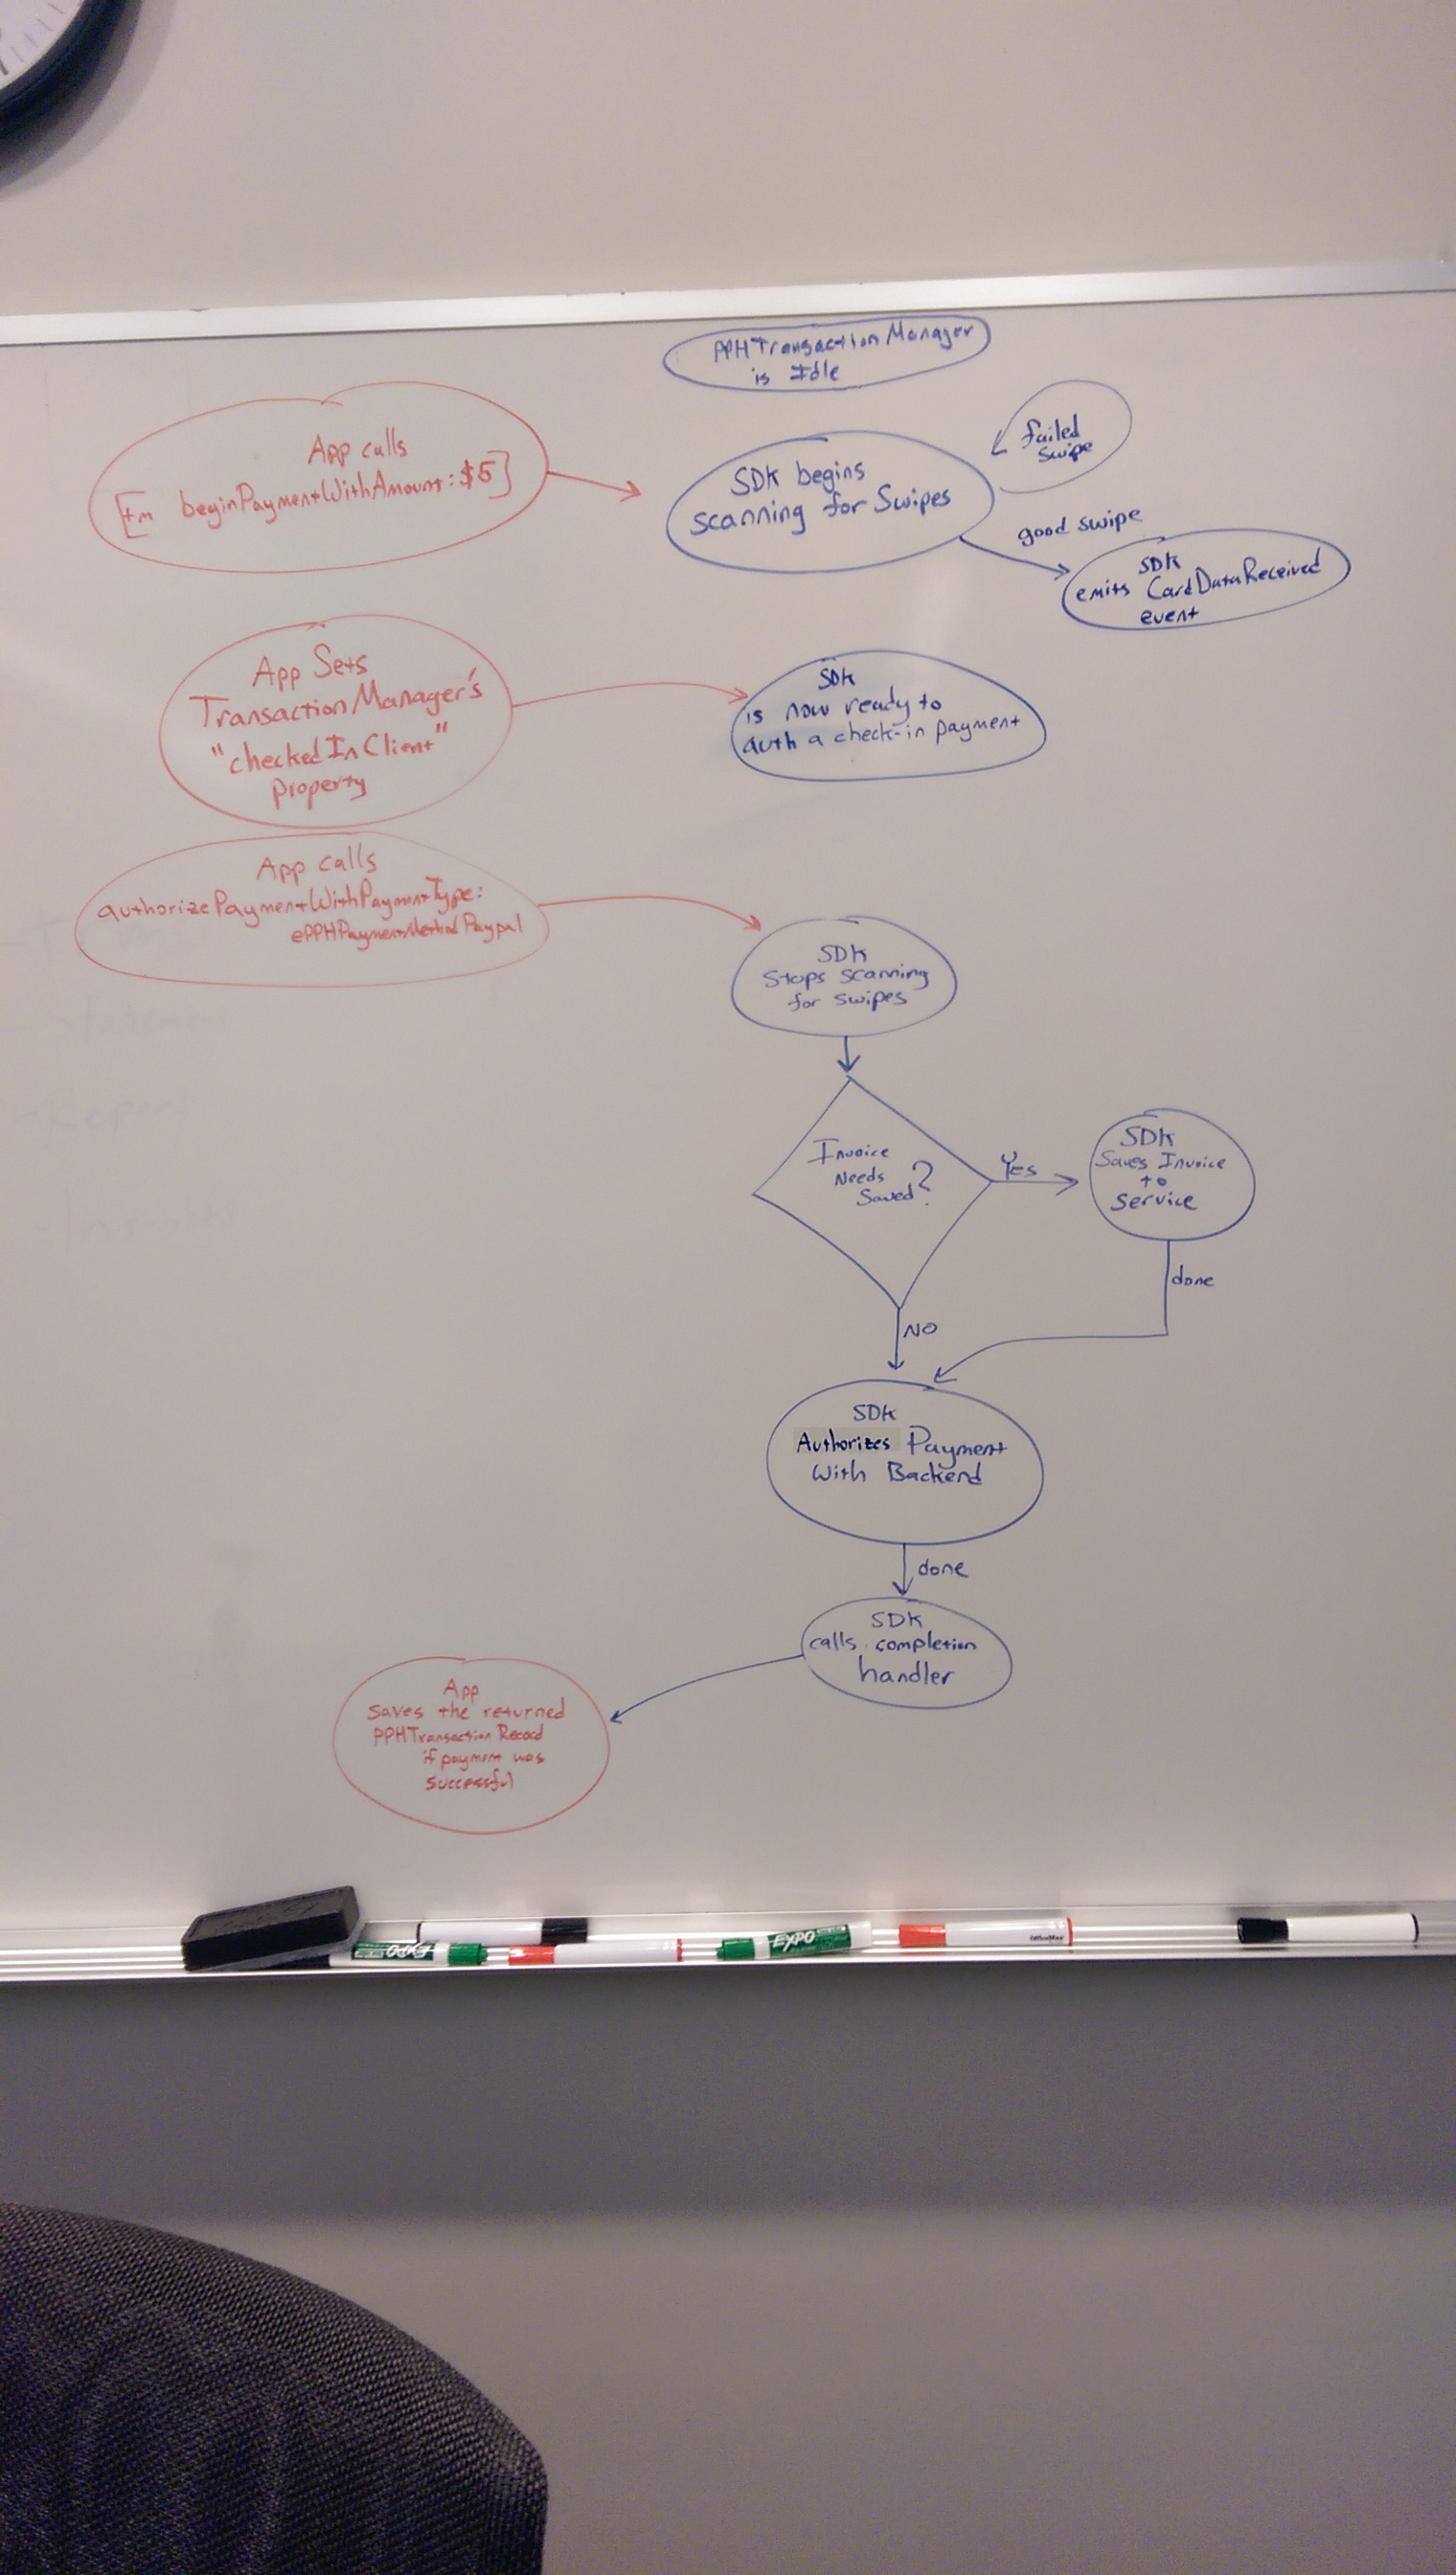 PPHTransactionManager
is Idle
App calls
[tm beginPaymentWithAmount:$5]
SDK begins
scanning for Swipes
failed
swipe
good swipe
SDK
emits CardDataReceived
event
App Sets
TransactionManager's
"checkedInClient"
property
SDK
is now ready to
auth a check-in payment
App calls
authorizePaymentWithPaymentType:
ePPHPaymentMethodPaypal
SDK
Stops scanning
for swipes
Invoice
Needs
Saved?
Yes
SDK
Saves Invoice
to
Service
done
NO
SDK
Authorizes Payment
With Backend
done
SDK
calls completion
handler
App
saves the returned
PPHTransactionRecord
if payment was
successful
EXPO
EXPO
OfficeMax